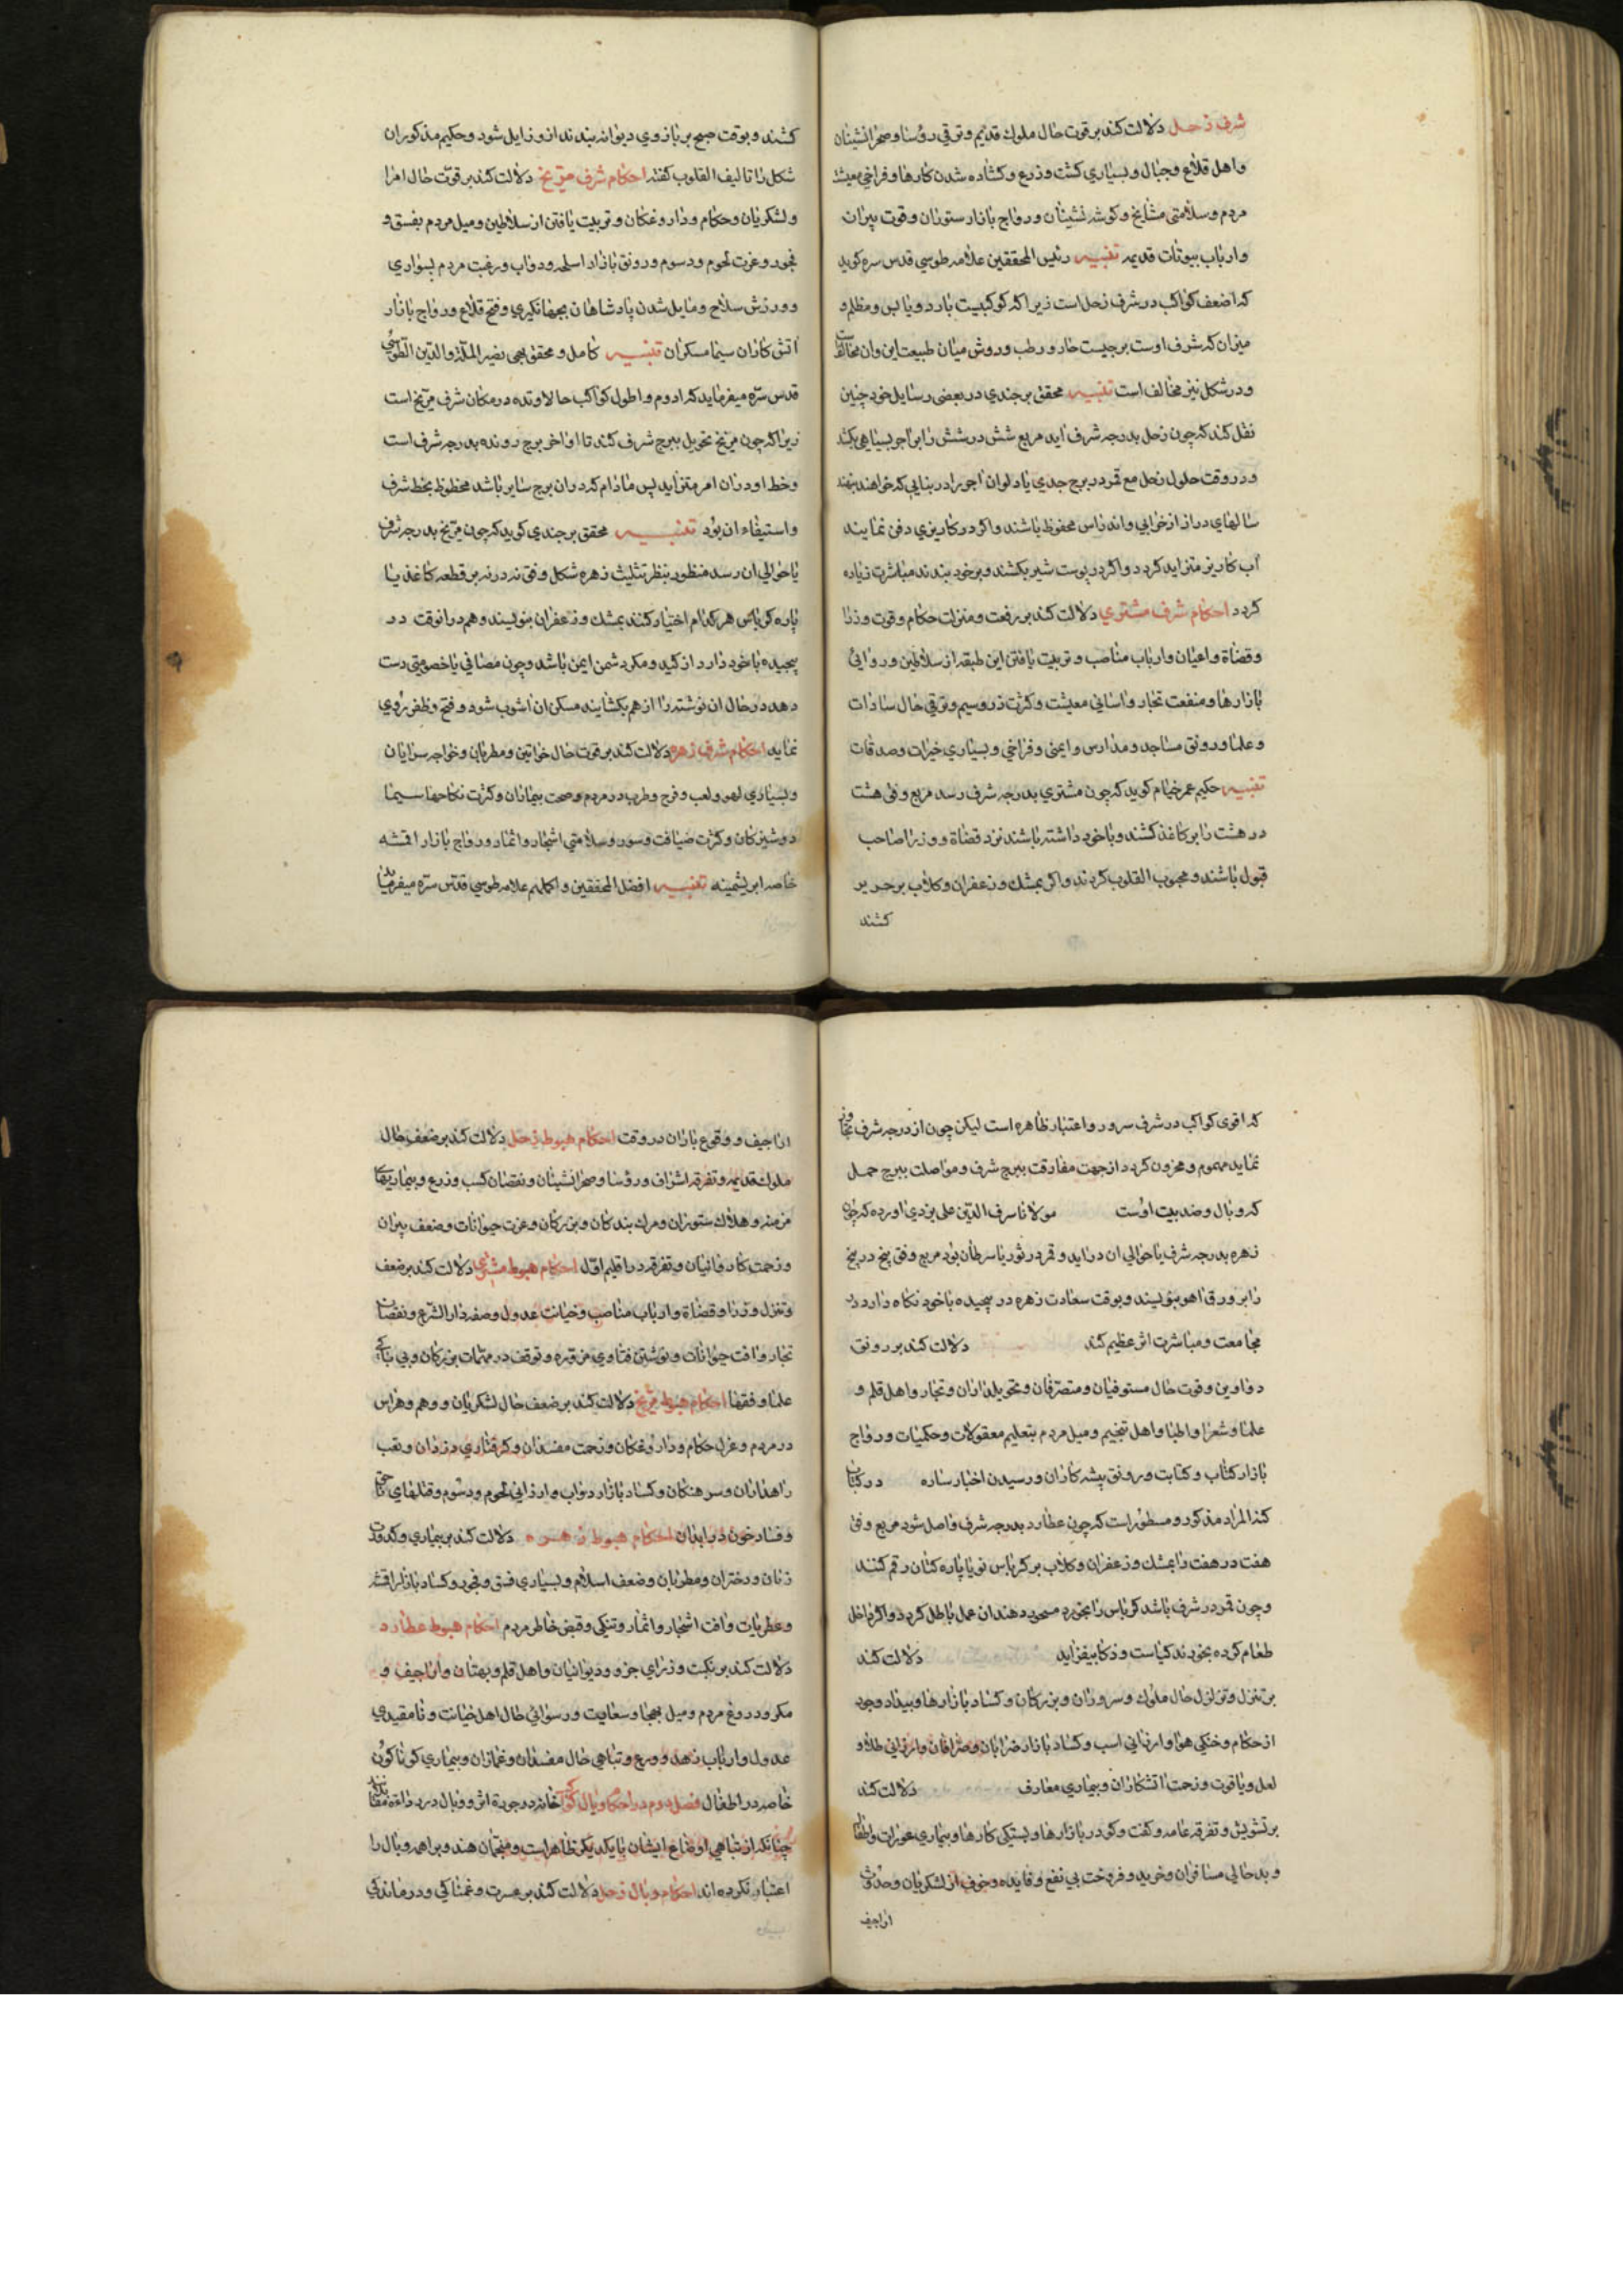 شرف زحل دلالت کند بر قوت حال ملوك قدیم و ترقی رؤسا و صحرانشینان
و اهل قلاع و جبال و بسیاری کشت و زرع و کشاده شدن کارها و فراخی معیشت
مردم و سلامتی مشایخ و کوشه نشینان و رواج بازار ستوران و قوت پیران
و ارباب بیوتات قدیمه تنبیه رئیس المحققین علامه طوسی قدس سره کوید
که اضعف کواکب در شرف زحل است زیرا که کوکبیست بارد و یابس و مظلم و
میزان که شرف اوست برجیست حار و رطب و روش میان طبیعت این و ان مخالفست
و در شکل نیز مخالف است تنبیه محقق برجندی در بعضی رسایل خود چنین
نقل کند که چون زحل بدرجه شرف اید مربع شش در شش را بر اجر بسیاهی بکشد
و در وقت حلول زحل مع قمر در برج جدی یا دلو ان اجر را در بنایی که خواهند بنهند
سالهای دراز از خرابی و اندراس محفوظ باشند و اکر در کاریزی دفن نمایند
اب کاریز متزاید کردد و اکر در پوست شیر بکشند و بر خود بندند مباشرت زیاده
کردد احکام شرف مشتری دلالت کند بر رفعت و منزلت حکام و قوت وزرا
و قضاة و اعیان و ارباب مناصب و تربیت یافتن این طبقه از سلاطین و روایی
بازارها و منفعت تجار و اسانی معیشت و کثرت زر و سیم و ترقی حال سادات
و علما و رونق مساجد و مدارس و ایمنی و فراخی و بسیاری خیرات و صدقات
تنبیه حکیم عمر خیام کوید که چون مشتری بدرجه شرف رسد مربع وفق هشت
در هشت را بر کاغذ کشند و با خود داشته باشند نزد قضاة و وزرا صاحب
قبول باشند و محبوب القلوب کردند و اکر بمشك و زعفران و کلاب بر حریر
کشند
کشند و بوقت صبح بر بازوی دیوانه بندند از و زایل شود و حکیم مذکور ان
شکل را تالیف القلوب کفته احکام شرف مریخ دلالت کند بر قوت حال امرا
و لشکریان و حکام و داروغکان و تربیت یافتن از سلاطین و میل مردم بفسق و
فجور و عزت لحوم و دسوم و رونق بازار اسلحه و دواب و رغبت مردم بسواری
و ورزش سلاح و مایل شدن پادشاهان بجهانکیری و فتح قلاع و رواج بازار
اتش کاران سیما مسکران تنبیه کامل و محقق یعنی نصیر الملة والدین الطوسی
قدس سره میفرماید که ادوم و اطول کواکب حالا و تده در مکان شرف مریخ است
زیرا که چون مریخ تحویل ببرج شرف کند تا اواخر برج رونده بدرجه شرف است
و خط او در ان امر متزاید پس مادام که در ان برج سایر باشد محظوظ بخط شرف
و استیفاء ان بود تنبیه محقق برجندی کوید که چون مریخ بدرجه شرف
یا حوالی ان رسد منظور بنظر تثلیث زهره شکل وفق نه در نه بر قطعه کاغذ یا
پاره کرباس هر کدام اختیار کنند بمشك و زعفران بنویسند و هم در انوقت در
پیچیده با خود دارد از کید و مکر دشمن ایمن باشد و چون مصافی یا خصومتی دست
دهد در حال ان نوشته را از هم بکشایند مسکن ان اشوب شود و فتح و ظفر روی
نماید احکام شرف زهره دلالت کند بر قوت حال خواتین و مطربان و خواجه سرایان
و بسیاری لهو و لعب و فرح و طرب در مردم و صحت بیماران و کثرت نکاحها سیما
دوشیزکان و کثرت ضیافت و سور و سلامتی اشجار و اثمار و رواج بازار اقمشه
خاصه ابریشمینه تنبیه افضل المحققین و اکملهم علامه طوسی قدس سره میفرماید
که اقوی کواکب در شرف سرور و اعتبار ظاهره است لیکن چون از درجه شرف تجاوز
نماید مهموم و محزون کردد از جهت مفارقت ببرج شرف و مواصلت ببرج حمل
که وبال و ضد بیت اوست مولانا شرف الدین علی یزدی اورده که چون
زهره بدرجه شرف یا حوالی ان دراید و قمر در ثور یا سرطان بود مربع وفق پنج در پنج
را بر ورق اهو بنویسند و بوقت سعادت زهره در پیچیده با خود نکاه دارد در
مجامعت و مباشرت اثر عظیم کند دلالت کند بر رونق
دواوین و قوت حال مستوفیان و متصرفان و تحویلداران و تجار و اهل قلم و
علما و شعرا و اطبا و اهل تنجیم و میل مردم بتعلیم معقولات و حکمیات و رواج
بازار کتاب و کتابت و رونق پیشه کاران و رسیدن اخبار ساره در کتاب
کنذ المراد مذکور و مسطور است که چون عطارد بدرجه شرف واصل شود مربع وفق
هفت در هفت را بمشك و زعفران و کلاب بر کرباس نو یا پاره کتان رقم کنند
و چون قمر در شرف باشد کرباس را بخورد مسحور دهند ان عمل باطل کردد و اکر داخل
طعام کرده بخورند کیاست و ذکا بیفزاید دلالت کند
بر تنزل و تزلزل حال ملوك و سروران و بزرکان و کساد بازارها و بیداد وجور
از حکام و خنکی هوا و ارزانی اسب و کساد بازار ضرابان و صرافان و ارزانی طلا و
لعل و یاقوت و زحمت اتشکاران و بیماری معارف دلالت کند
بر تشویش و تفرقه عامه و کفت و کو در بازارها و بستکی کارها و بیماری عورات و اطفال
و بد حالی مسافران و خرید و فروخت بی نفع و فایده و خوف از لشکریان و حدوث
اراجیف
اراجیف و وقوع باران در وقت احکام هبوط زحل دلالت کند بر ضعف حال
ملوك قدیمه و تفرقه اشراف و رؤسا و صحرانشینان و نقصان کسب و زرع و بیماریهای
مزمنه و هلاك ستوران و مرك بندکان و بزرکان و عزت حیوانات و ضعف پیران
و زحمت کاروانیان و تفرقه در اقلیم اول احکام هبوط مشتری دلالت کند بر ضعف
و تنزل وزرا و قضاة و ارباب مناصب و خیانت عدول و صفه دار الشرع و نقصان
تجار و افت حیوانات و نوشتن فتاوی مزوره و توقف در مهمات بزرکان و بی باکی
علما و فقها احکام هبوط مریخ دلالت کند بر ضعف حال لشکریان و وهم و هراس
در مردم و عزل حکام و داروغکان و زحمت مفسدان و کرفتاری دزدان و تعب
راهداران و سرهنکان و کساد بازار دواب و ارزانی لحوم و دسوم و قتلهای
و فساد خون در ابدان احکام هبوط زهره دلالت کند بر بیماری و کدورت
زنان و دختران و مطربان و ضعف اسلام و بسیاری فسق و فجور و کساد بازار اقمشه
و عطریات و افت اشجار و اثمار و تنکی و قبض خاطر مردم احکام هبوط عطارد
دلالت کند بر نکبت وزرای جزو و دیوانیان و اهل قلم و بهتان و اراجیف و
مکر و دروغ مردم و میل بهجا و سعایت و رسوائی حال اهل خیانت و نامقیدی
عدول و ارباب زهد و ورع و تباهی حال مفسدان و غمازان و بیماری کوناکون
خاصه در اطفال فصل دوم در احکام وبال کواکب
چنانکه از تباهی اوضاع ایشان با یکدیکر ظاهر است و منجمان هند و براهمه وبال را
اعتبار نکرده اند احکام وبال زحل دلالت کند بر عسرت و غمناکی و درماندکی